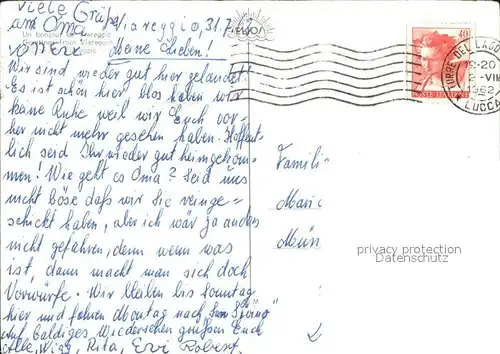 Viele Grüße
an Oma
Viareggio, 31.7.
Un bonjour de Viareggio
from Viareggio
Meine Lieben!
Wir sind wieder gut hier gelandet.
Es ist schön hier blos haben wir
keine Ruhe weil wir Euch vor-
her nicht mehr gesehen haben. Hoffent-
lich seid Ihr wieder gut heimgekom-
men! Wie geht es Oma? Seid uns
nicht böse daß wir Sie reinge-
schickt haben, aber ich wär ja anders
nicht gefahren, denn wenn was
ist, dann macht man sich doch
Vorwürfe. Wir bleiben bis Sonntag
hier und fahren Montag nach San
auf baldiges Wiedersehen grüßen Euch
Alle, Rita, Evi Robert.
40
POSTE ITALIANE
TORRE DEL LAGO
18-20
2-VIII
1962
LUCCA
Famili
Marie
Mün
privacy protection
Datenschutz